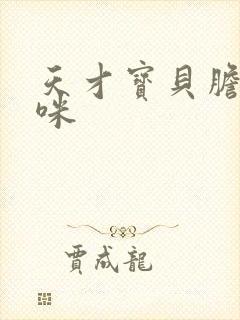 天才寶貝膽
咪
賈成龍